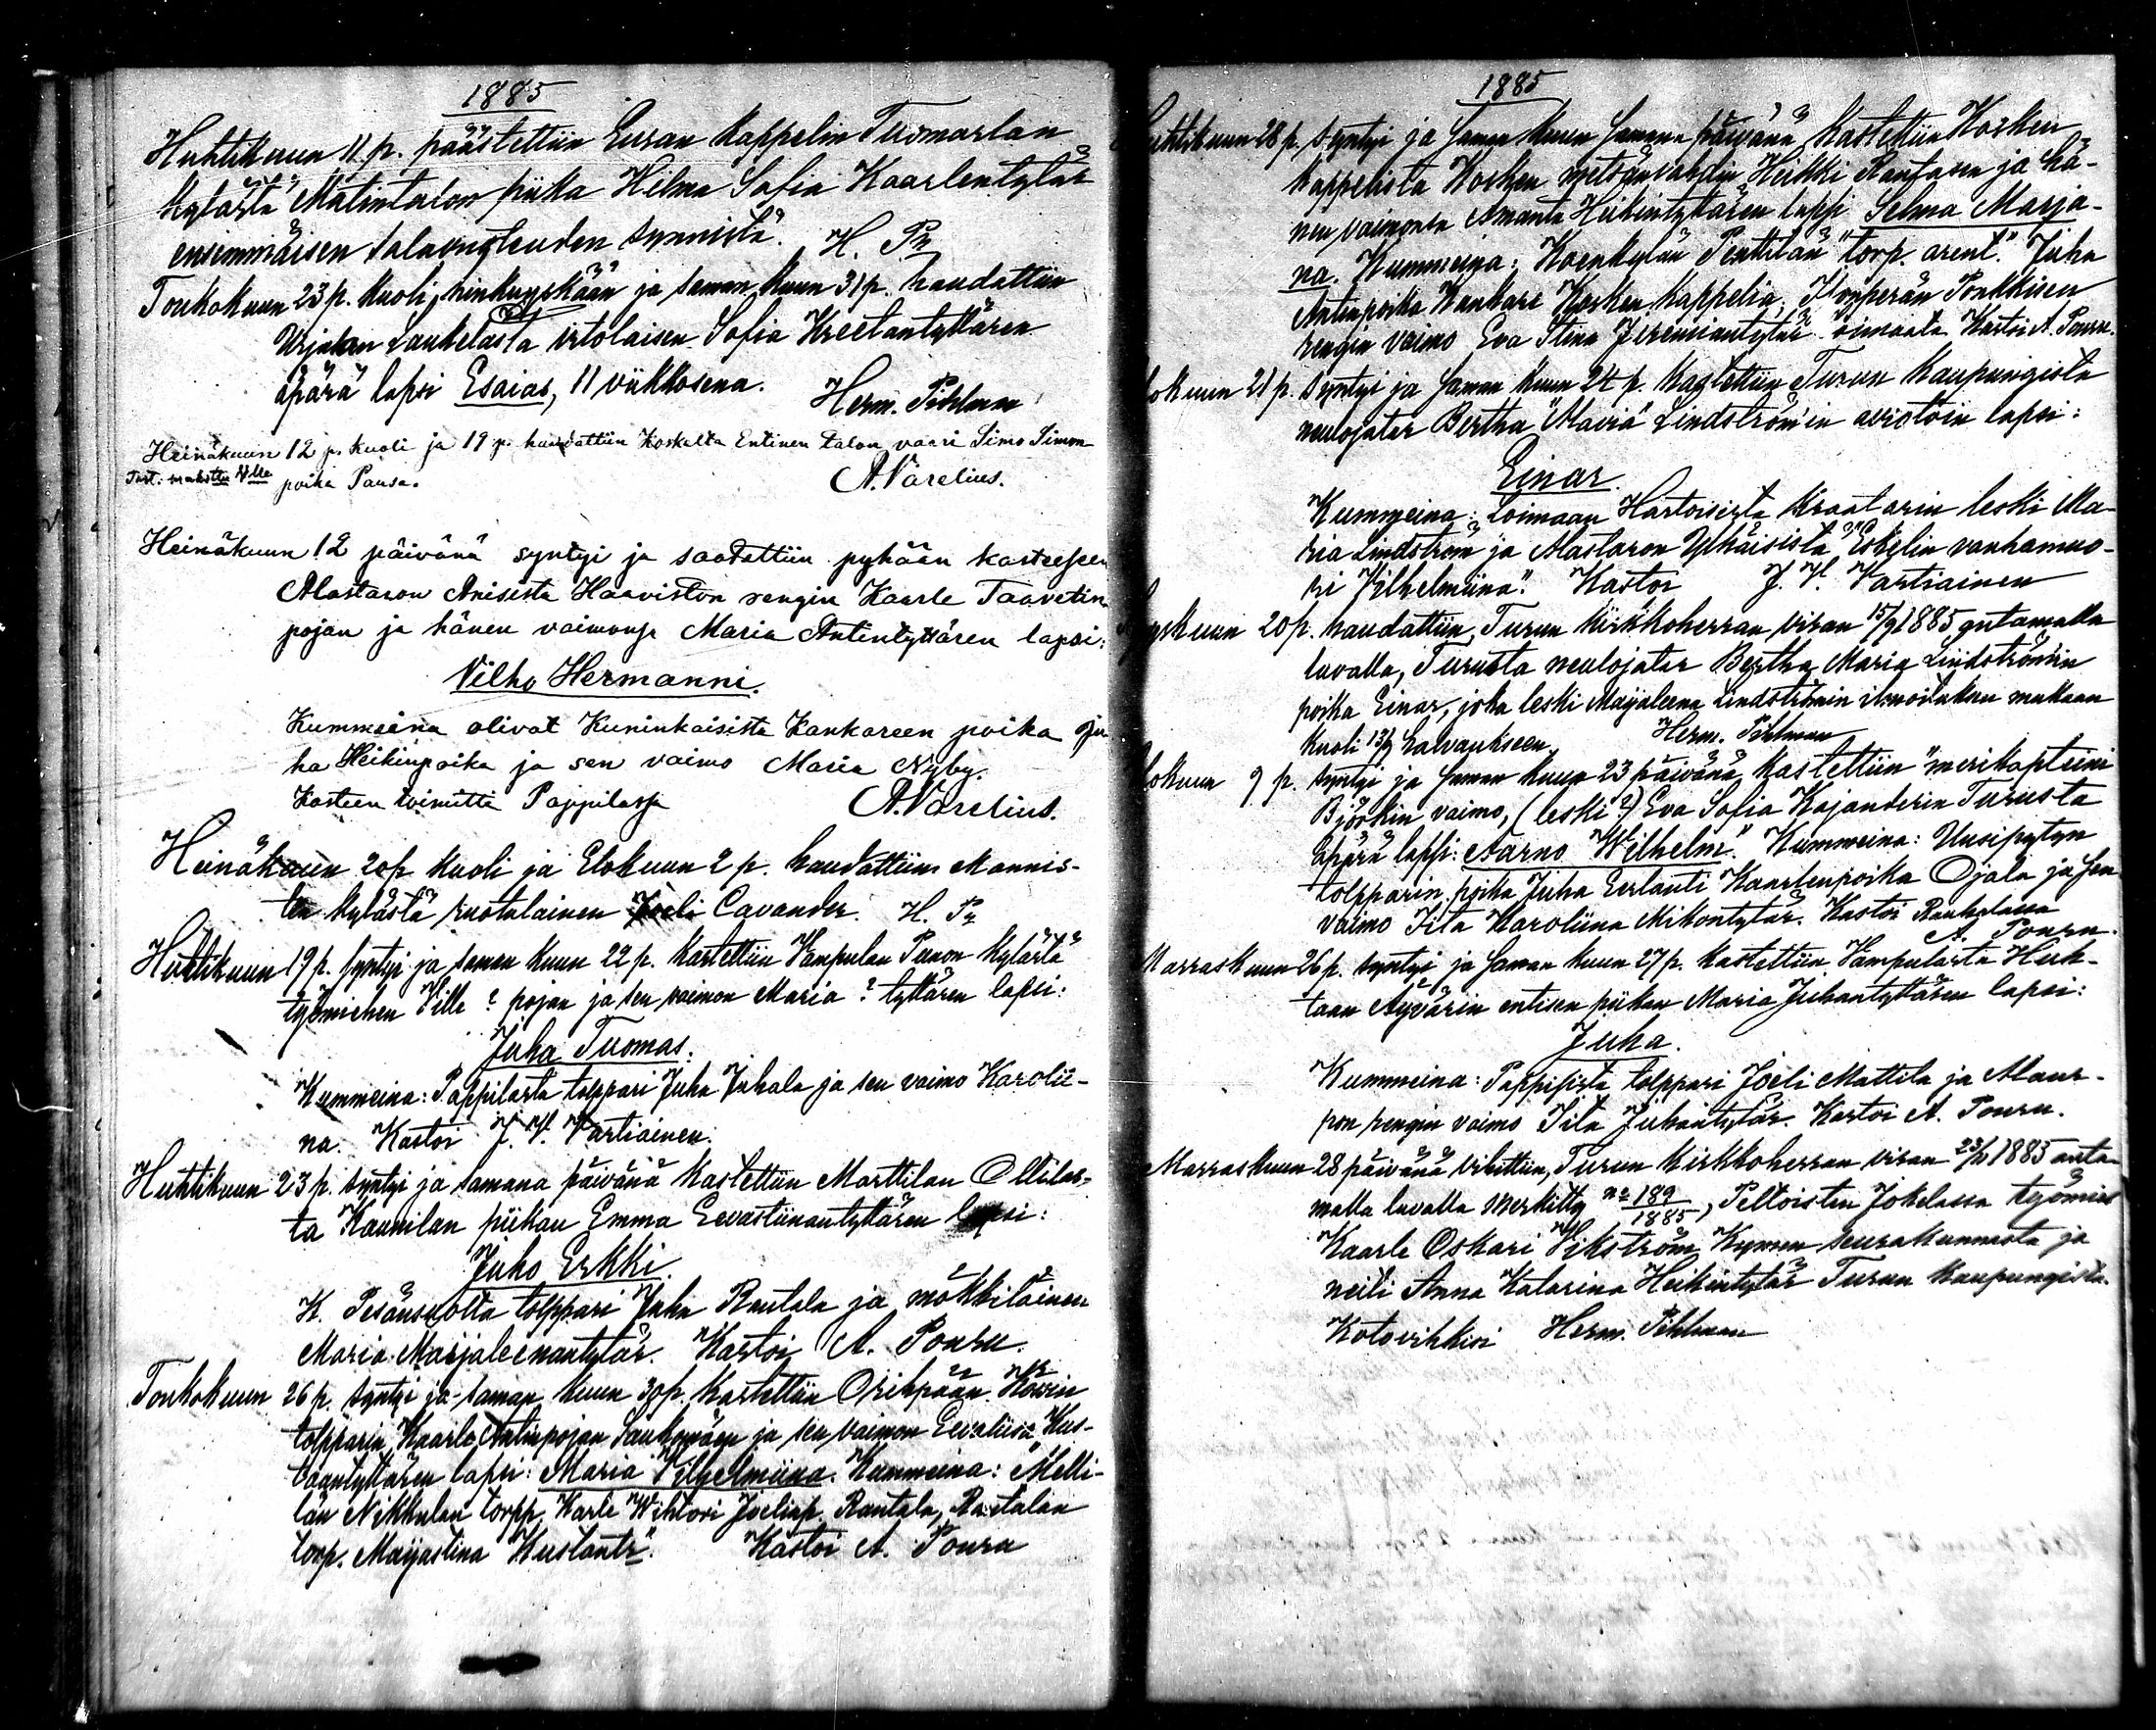 1885
Huhtikuun 11 p. päästettiin Euran kappelin Tuomarlan
kylästä Matintalon piika Hilma Sofia Kaarlentytär
ensimmäisen salavuoteuden synnistä. H. Pn
Toukokuun 23 p. kuoli hinkuyskään ja saman kuun 31 p. haudattiin
Urjalan Laukelasta irtolaisen Sofia Kreetantyttären
äpärä lapsi Esaias, 11 viikkosena. Herm. Pihlman
Heinäkuun 12 p. kuoli ja 19 p. haudattiin Koskelta Entinen talon vaari Simo Simon
poika Pausa. A. Varelius.
Heinäkuun 12 päivänä syntyi ja saatettiin pyhään kasteeseen
Alastaron Anisista Haaviston rengin Kaarle Taavetin
pojan ja hänen vaimonsa Maria Antintyttären lapsi:
Vilho Hermanni.
Kummeina olivat Kuninkaisista Kankareen poika Ju
ha Heikinpoika ja sen vaimo Maria Nyby.
Kasteen toimitti Pappilassa A. Varelius.
Heinäkuun 20 p. kuoli ja Elokuun 2 p. haudattiin Mannis-
ten kylästä ruotulainen Joeli Cavander. H. Pn
Huhtikuun 19 p. syntyi ja saman kuun 22 p. kastettiin Vampulan Paron kylästä
työmiehen Ville ? pojan ja sen vaimon Maria ? tyttären lapsi:
Juha Tuomas.
Kummeina: Pappilasta tolppari Juha Juhala ja sen vaimo Karolii-
na. Kastoi J. V. Vartiainen.
Huhtikuun 23 p. syntyi ja samana päivänä kastettiin Marttilan Ollilas-
ta Kaunilan piikan Emma Eevastiinantyttären lapsi:
Juho Erkki.
K. Pesänsuolta tolppari Juha Rautala ja mökkiläinen
Maria Maijaleenantytär. Kastoi A. Pouru.
Toukokuun 26 p. syntyi ja saman kuun 30 p. kastettiin Oripään
tolpparin Kaarle Antinpojan ja sen vaimon Eevaliisa Kus-
taantyttären lapsi: Maria Vilhelmiina. Kummeina: Melli-
län Nikkulan torpp. Karle Wihtori Joelinp. Rautala, Rautalan
torp. Maijastina Kustantr. Kastoi A. Pouru
1885
Huhtikuun 28 p. syntyi ja saman kuun samana päivänä kastettiin Kosken
kappelista Kosken metsänvahdin Heikki Rantasen ja hä-
nen vaimonsa Amanta Heikintyttären lapsi Selma Marja-
na. Kummeina: Koenkylän Penttilän "torp. arent." Juha
Antinpoika Kankare Kosken kappelia,
rengin vaimo Eva Stina Jeremiantytär Kastoi A. Pouru.
21 p. syntyi ja saman kuun 24 p. kastettiin Turun kaupungista
neulojatar Bertha Maria Lindström'in avioton lapsi:
Einar.
Kummeina: Loimaan Hartoisista kraatarin leski Ma-
ria Lindström ja Alastaron Ylhäisistä Eskelin vanhamuo-
ri Vilhelmiina. Kastoi J. V. Vartiainen
20 p. haudattiin, Turun kirkkoherran viran 15/9 1885 antamalla
luvalla, Turusta neulojatar Bertha Maria Lindströmin
poika Einar, joka leski Maijaleena Lindströmin ilmoituksen mukaan
kuoli 13/9 halvaukseen. Herm. Pihlman
9 p. syntyi ja saman kuun 23 päivänä kastettiin "merikapteini
Björkin vaimo, (leski?) Eva Sofia Kajanderin Turusta
äpärä lapsi: Aarno Wilhelm. Kummeina: Uusipytyn
tolpparin poika Juha Eerlanti Kaarlenpoika Ojala ja sen
vaimo Iita Karoliina Mikontytär. Kastoi Rauhalassa
A. Pouru.
Marraskuun 26 p. syntyi ja saman kuun 27 p. kastettiin Vampulasta Huh-
taan Äyvärin entisen piikan Maria Juhantyttären lapsi:
Juha.
Kummeina: Pappisista tolppari Joeli Mattila ja Alaus-
pon rengin vaimo Iita Juhantytär. Kastoi A. Pouru.
Marraskuun 28 päivänä vihittiin, Turun kirkkoherran viran 23/11 1885 anta-
malla luvalla merkitty no 189/1885, Peltoisten Jokelassa työmies
Kaarle Oskari Vikström Kymen seurakunnasta ja
neiti Anna Katarina Heikintytär Turun kaupungista.
Kotovihkisi Herm. Pihlman